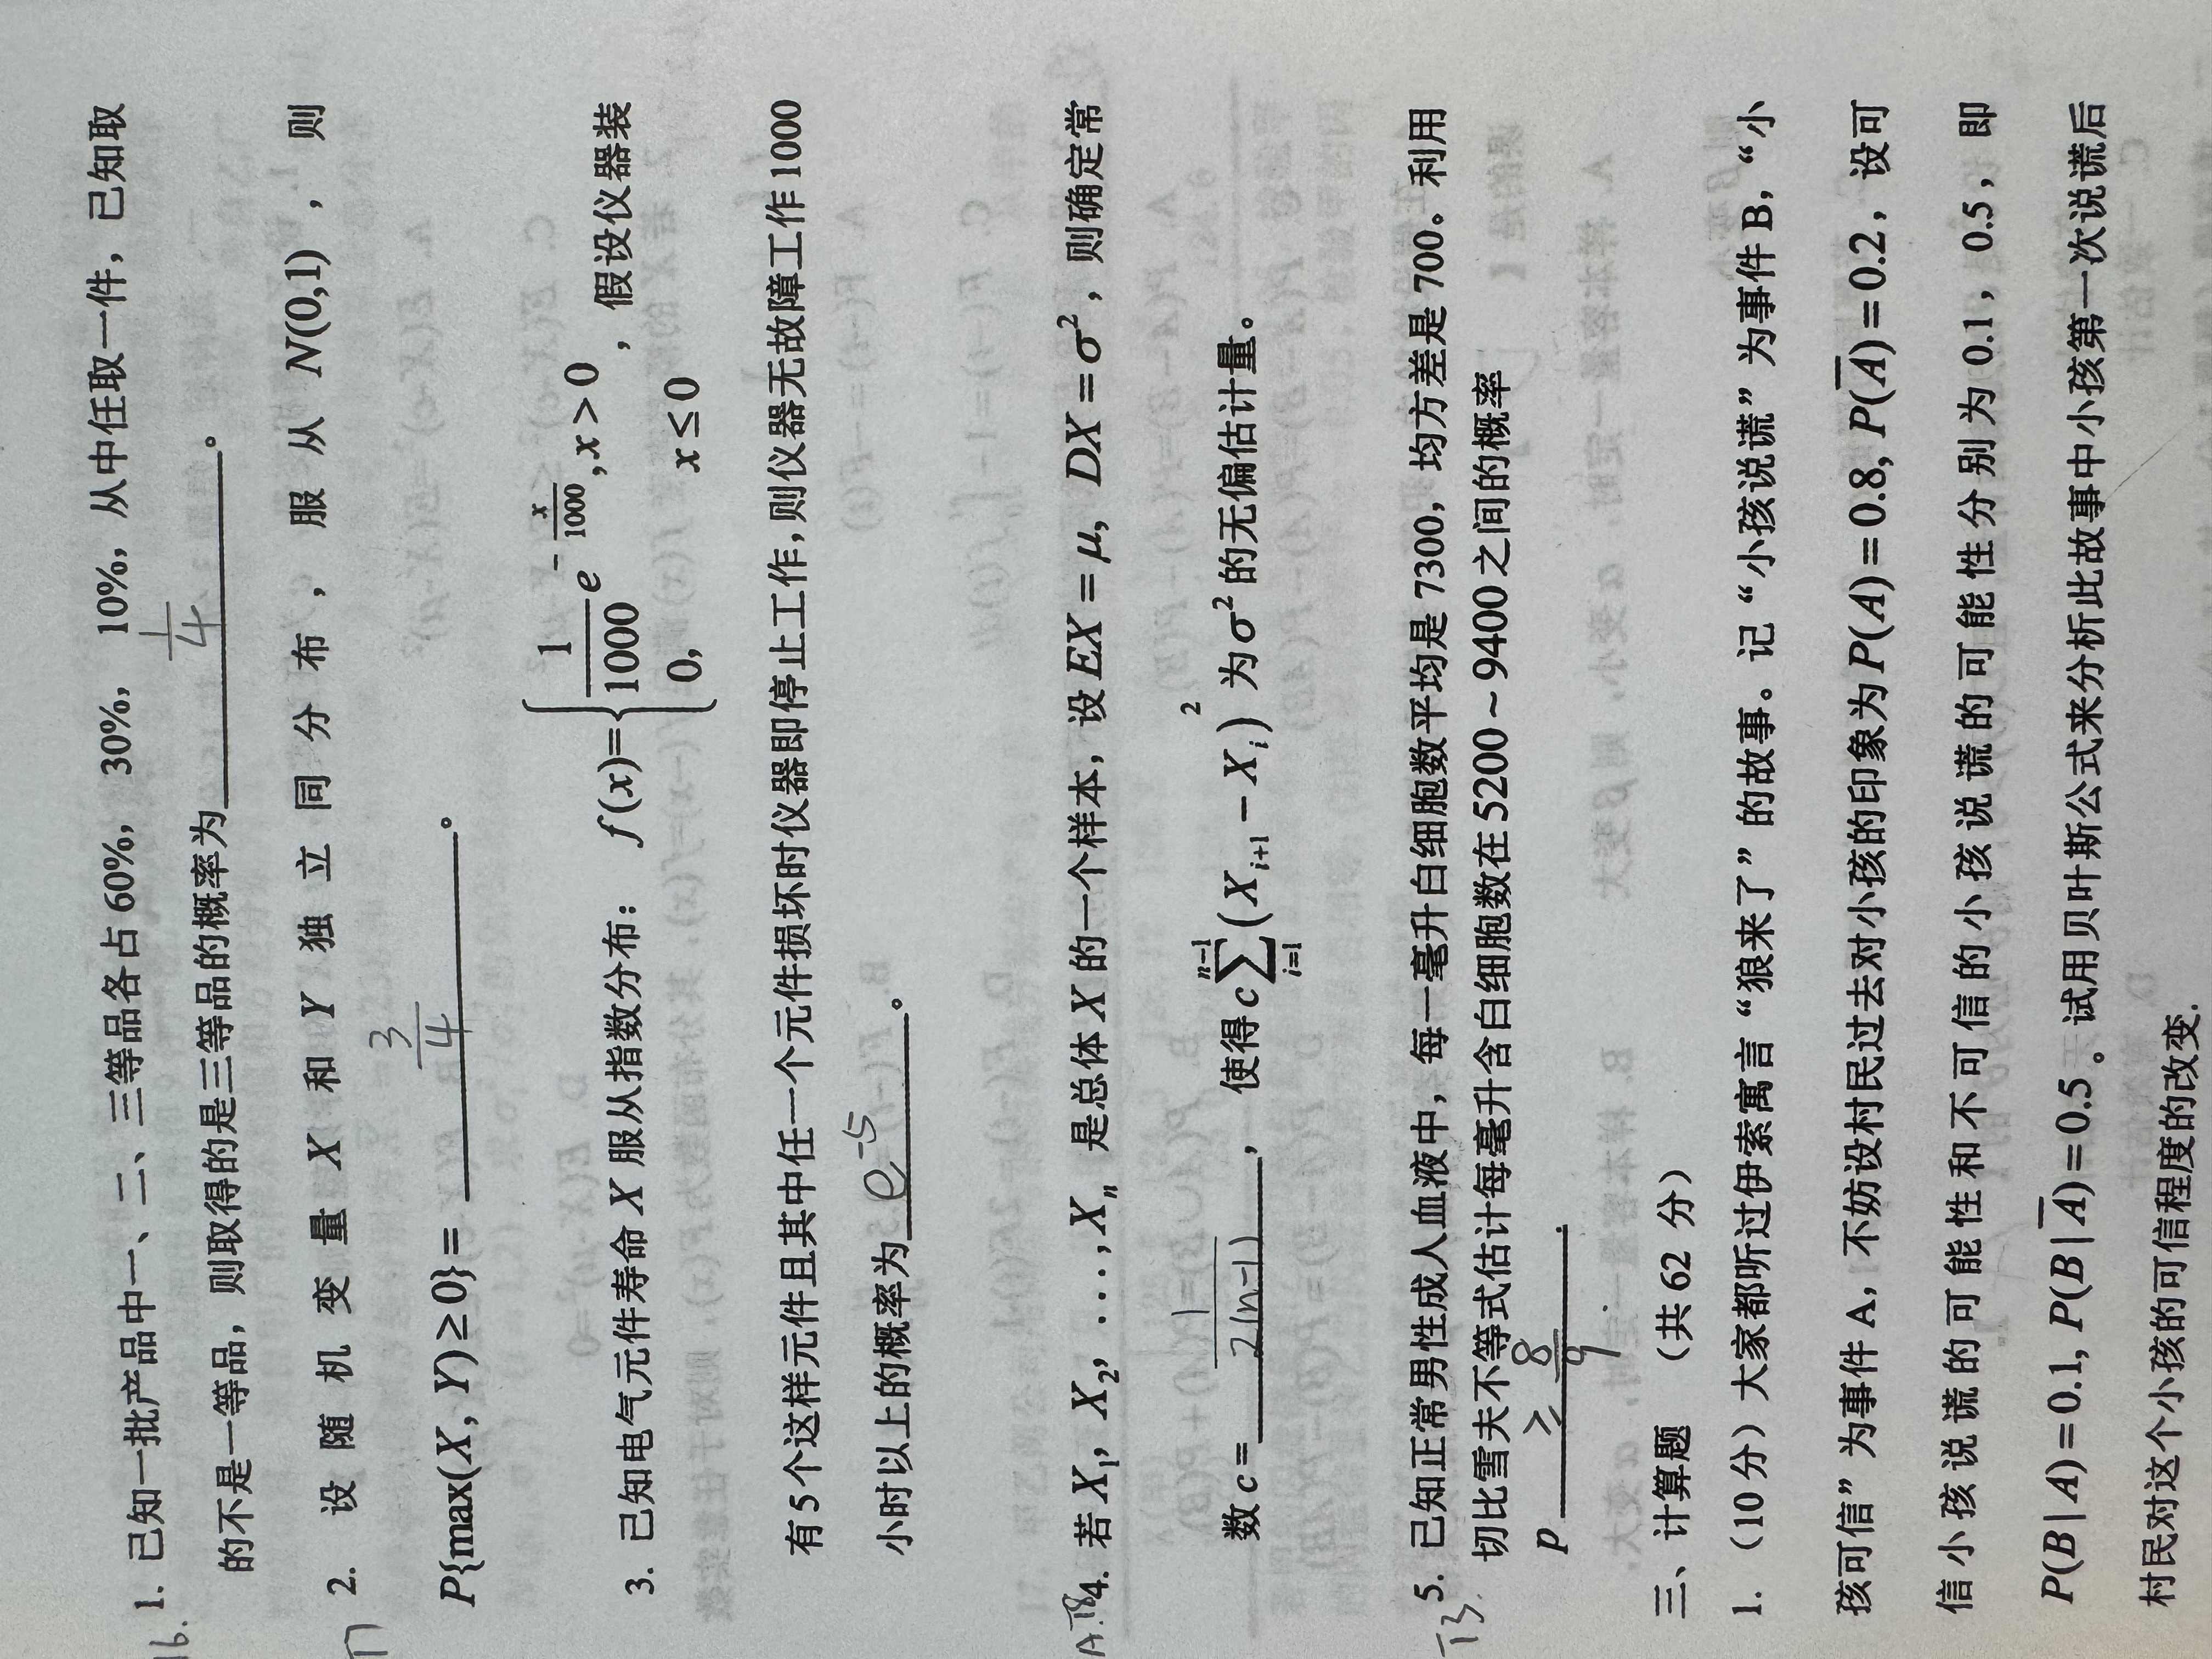 16. 1. 已知一批产品中一、二、三等品各占 60%， 30%， 10%，从中任取一件，已知取
的不是一等品，则取得的是三等品的概率为 1/4 。
17 2. 设随机变量 X 和 Y 独立同分布，服从 N(0,1)，则
P{max(X, Y) ≥ 0} = 3/4 。
3. 已知电气元件寿命 X 服从指数分布： f(x)={ 1/1000 e^{-x/1000}, x > 0; 0, x ≤ 0 ，假设仪器装
有5个这样元件且其中任一个元件损坏时仪器即停止工作，则仪器无故障工作1000
小时以上的概率为 e^{-5} 。
4. 若 X₁，X₂，…，Xₙ 是总体 X 的一个样本，设 EX = μ, DX = σ²，则确定常
数 c = 1/2(n-1) ， 使得 c∑_{i=1}^{n-1}(X_{i+1} − X_i)² 为 σ² 的无偏估计量。
5. 已知正常男性成人血液中，每一毫升白细胞数平均是 7300，均方差是 700。利用
切比雪夫不等式估计每毫升含白细胞数在 5200 ~ 9400 之间的概率
p ≥ 8/9 .
三、计算题 （共 62 分）
1. （10 分）大家都听过伊索寓言“狼来了”的故事。记“小孩说谎”为事件 B，“小
孩可信”为事件 A，不妨设村民过去对小孩的印象为 P(A) = 0.8, P(A̅) = 0.2，设可
信小孩说谎的可能性和不可信的小孩说谎的可能性分别为 0.1， 0.5，即
P(B | A) = 0.1, P(B | A̅) = 0.5 。试用贝叶斯公式来分析此故事中小孩第一次说谎后
村民对这个小孩的可信程度的改变.